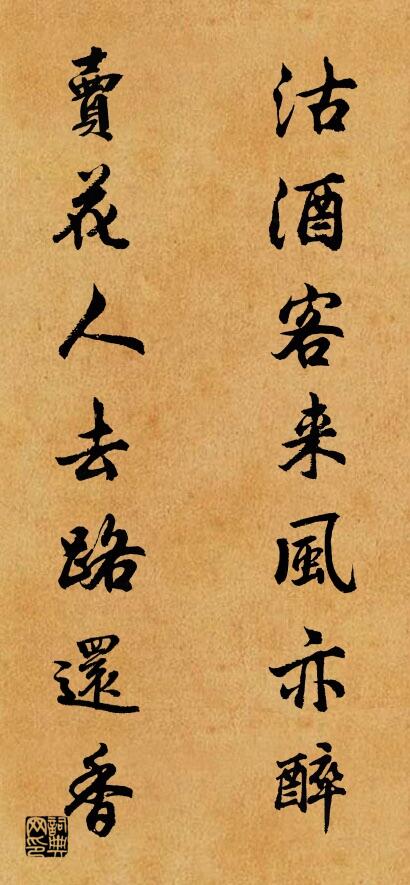 沽酒客来風亦醉
賣花人去路還香
詞典网印